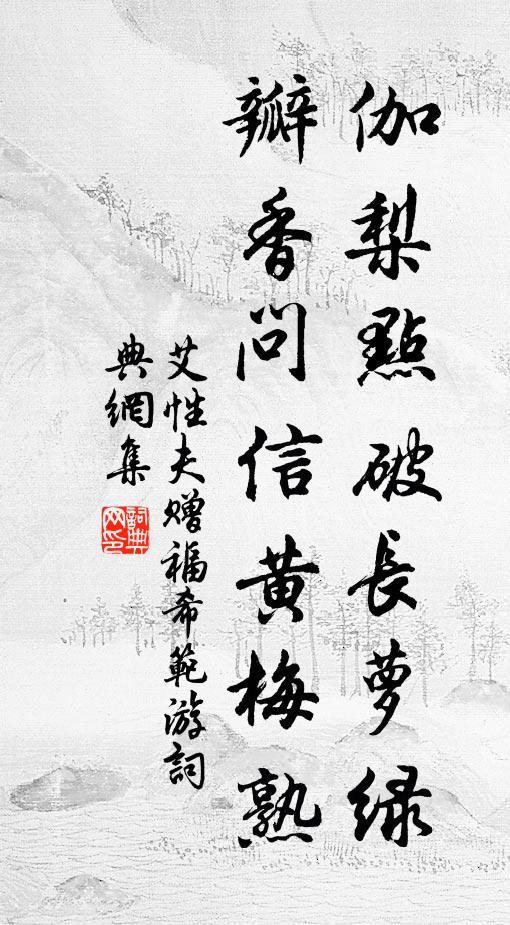 伽梨點破長萝綠
瓣香問信黃梅熟
艾性夫赠福希範游詞
典網集
詞典网印